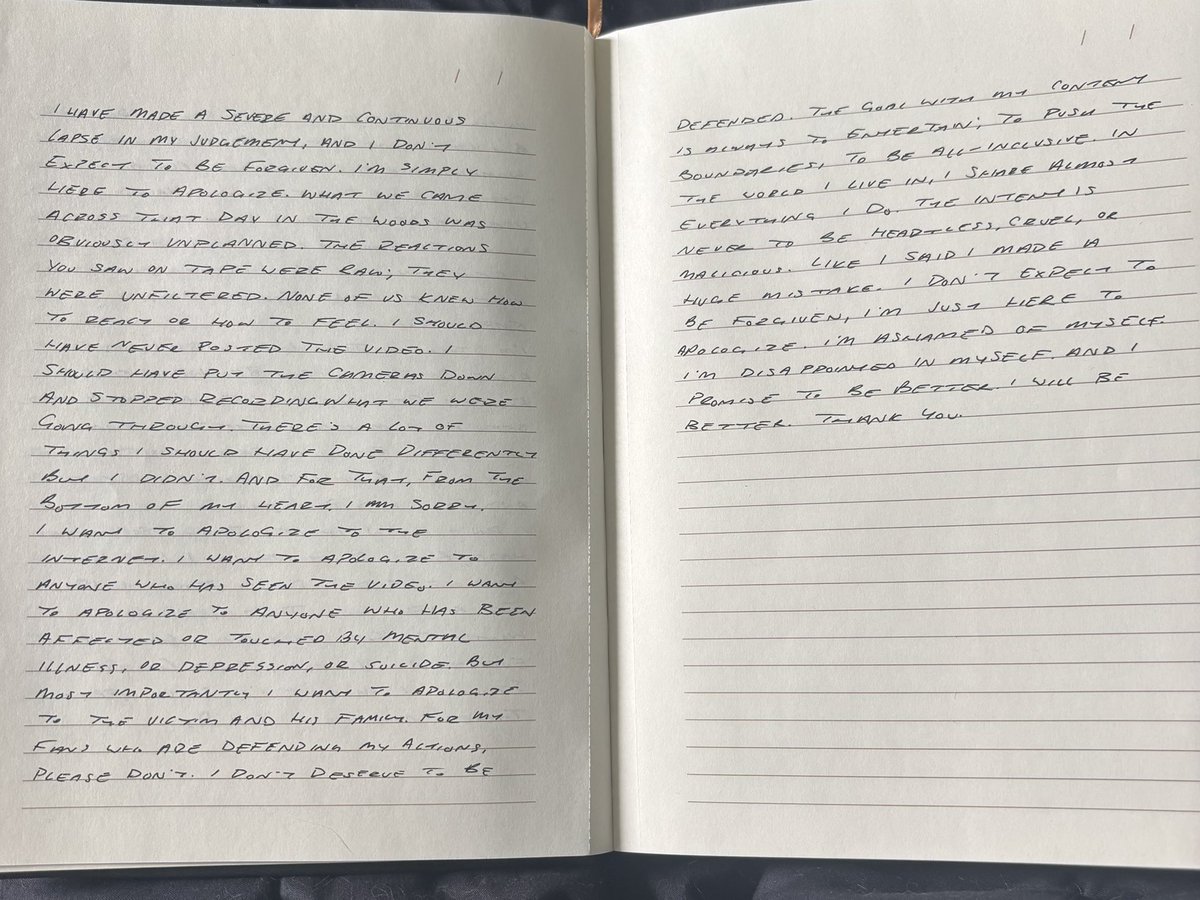 I HAVE MADE A SEVERE AND CONTINUOUS
LAPSE IN MY JUDGEMENT, AND I DON'T
EXPECT TO BE FORGIVEN. I'M SIMPLY
HERE TO APOLOGIZE. WHAT WE CAME
ACROSS THAT DAY IN THE WOODS WAS
OBVIOUSLY UNPLANNED. THE REACTIONS
YOU SAW ON TAPE WERE RAW; THEY
WERE UNFILTERED. NONE OF US KNEW HOW
TO REACT OR HOW TO FEEL. I SHOULD
HAVE NEVER POSTED THE VIDEO. I
SHOULD HAVE PUT THE CAMERAS DOWN
AND STOPPED RECORDING WHAT WE WERE
GOING THROUGH. THERE'S A LOT OF
THINGS I SHOULD HAVE DONE DIFFERENTLY
BUT I DIDN'T. AND FOR THAT, FROM THE
BOTTOM OF MY HEART, I AM SORRY.
I WANT TO APOLOGIZE TO THE
INTERNET. I WANT TO APOLOGIZE TO
ANYONE WHO HAS SEEN THE VIDEO. I WANT
TO APOLOGIZE TO ANYONE WHO HAS BEEN
AFFECTED OR TOUCHED BY MENTAL
ILLNESS, OR DEPRESSION, OR SUICIDE. BUT
MOST IMPORTANTLY I WANT TO APOLOGIZE
TO THE VICTIM AND HIS FAMILY. FOR MY
FANS WHO ARE DEFENDING MY ACTIONS,
PLEASE DON'T. I DON'T DESERVE TO BE
DEFENDED. THE GOAL WITH MY CONTENT
IS ALWAYS TO ENTERTAIN; TO PUSH THE
BOUNDARIES, TO BE ALL-INCLUSIVE. IN
THE WORLD I LIVE IN, I SHARE ALMOST
EVERYTHING I DO. THE INTENT IS
NEVER TO BE HEARTLESS, CRUEL, OR
MALICIOUS. LIKE I SAID I MADE A
HUGE MISTAKE. I DON'T EXPECT TO
BE FORGIVEN, I'M JUST HERE TO
APOLOGIZE. I'M ASHAMED OF MYSELF.
I'M DISAPPOINTED IN MYSELF. AND I
PROMISE TO BE BETTER. I WILL BE
BETTER. THANK YOU.